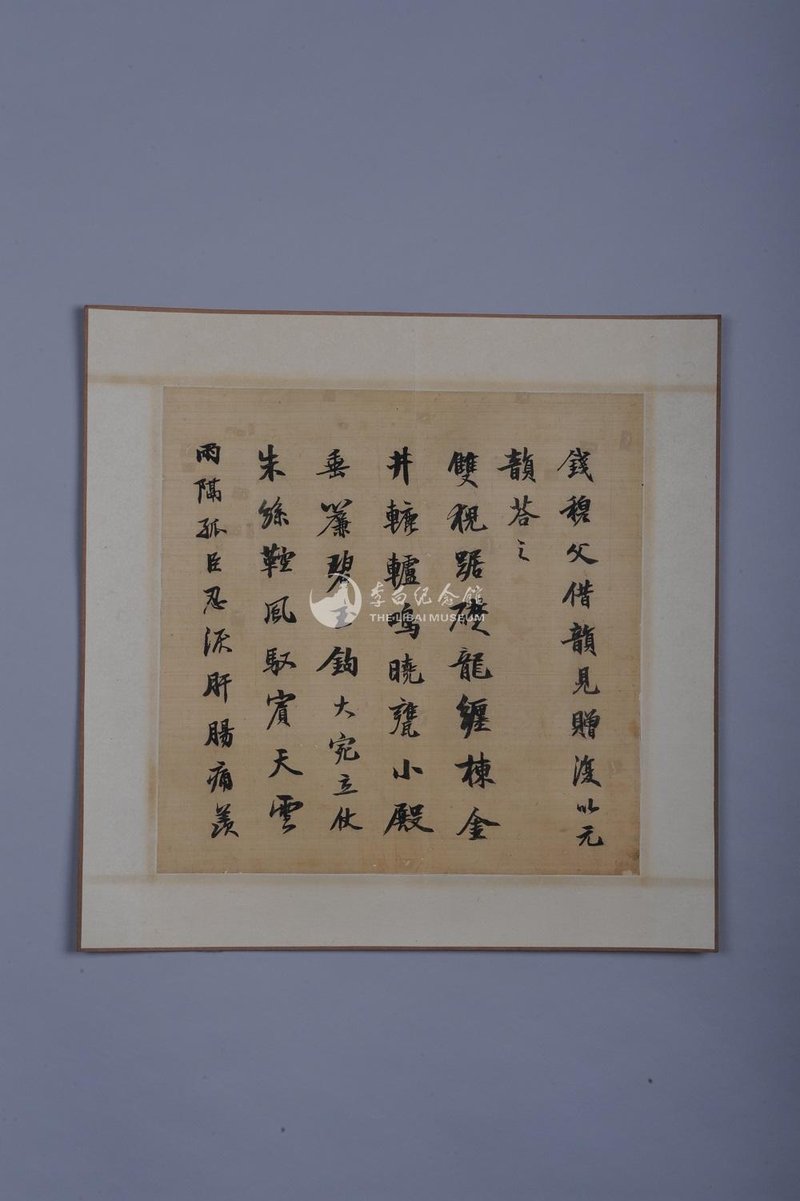 錢穆父借韻見贈復以元
韻荅之
雙猊踞礎龍纏棟金
井轆轤鳴曉甕小殿
垂簾碧玉鉤大宛立仗
朱絲鞚風馭賓天雲
雨隔孤臣忍淚肝腸痛羨
李白纪念館
THE LIBAI MUSEUM